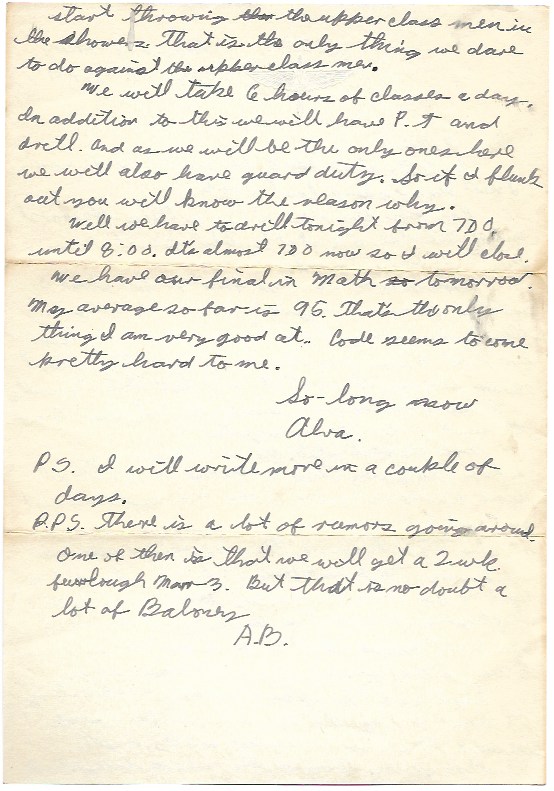 start throwing the the upper class men in
the showers. That is the only thing we dare
to do against the upper class men.
We will take 6 hours of classes a day.
In addition to this we will have P.T and
drill. And as we will be the only ones here
we will also have guard duty. So if I flunk
out you will know the reason why.
Well we have to drill tonight from 700
until 8:00. It's almost 700 now so I will close.
We have our final in Math so tomorrow.
My average so far is 95. That's the only
thing I am very good at. Code seems to come
pretty hard to me.
So-long now
Alva.
PS. I will write more in a couple of
days.
P.P.S. There is a lot of rumors going around.
One of then is that we will get a 2 wk.
furrlough Mar 3. But that is no doubt a
lot of Baloney
A.B.